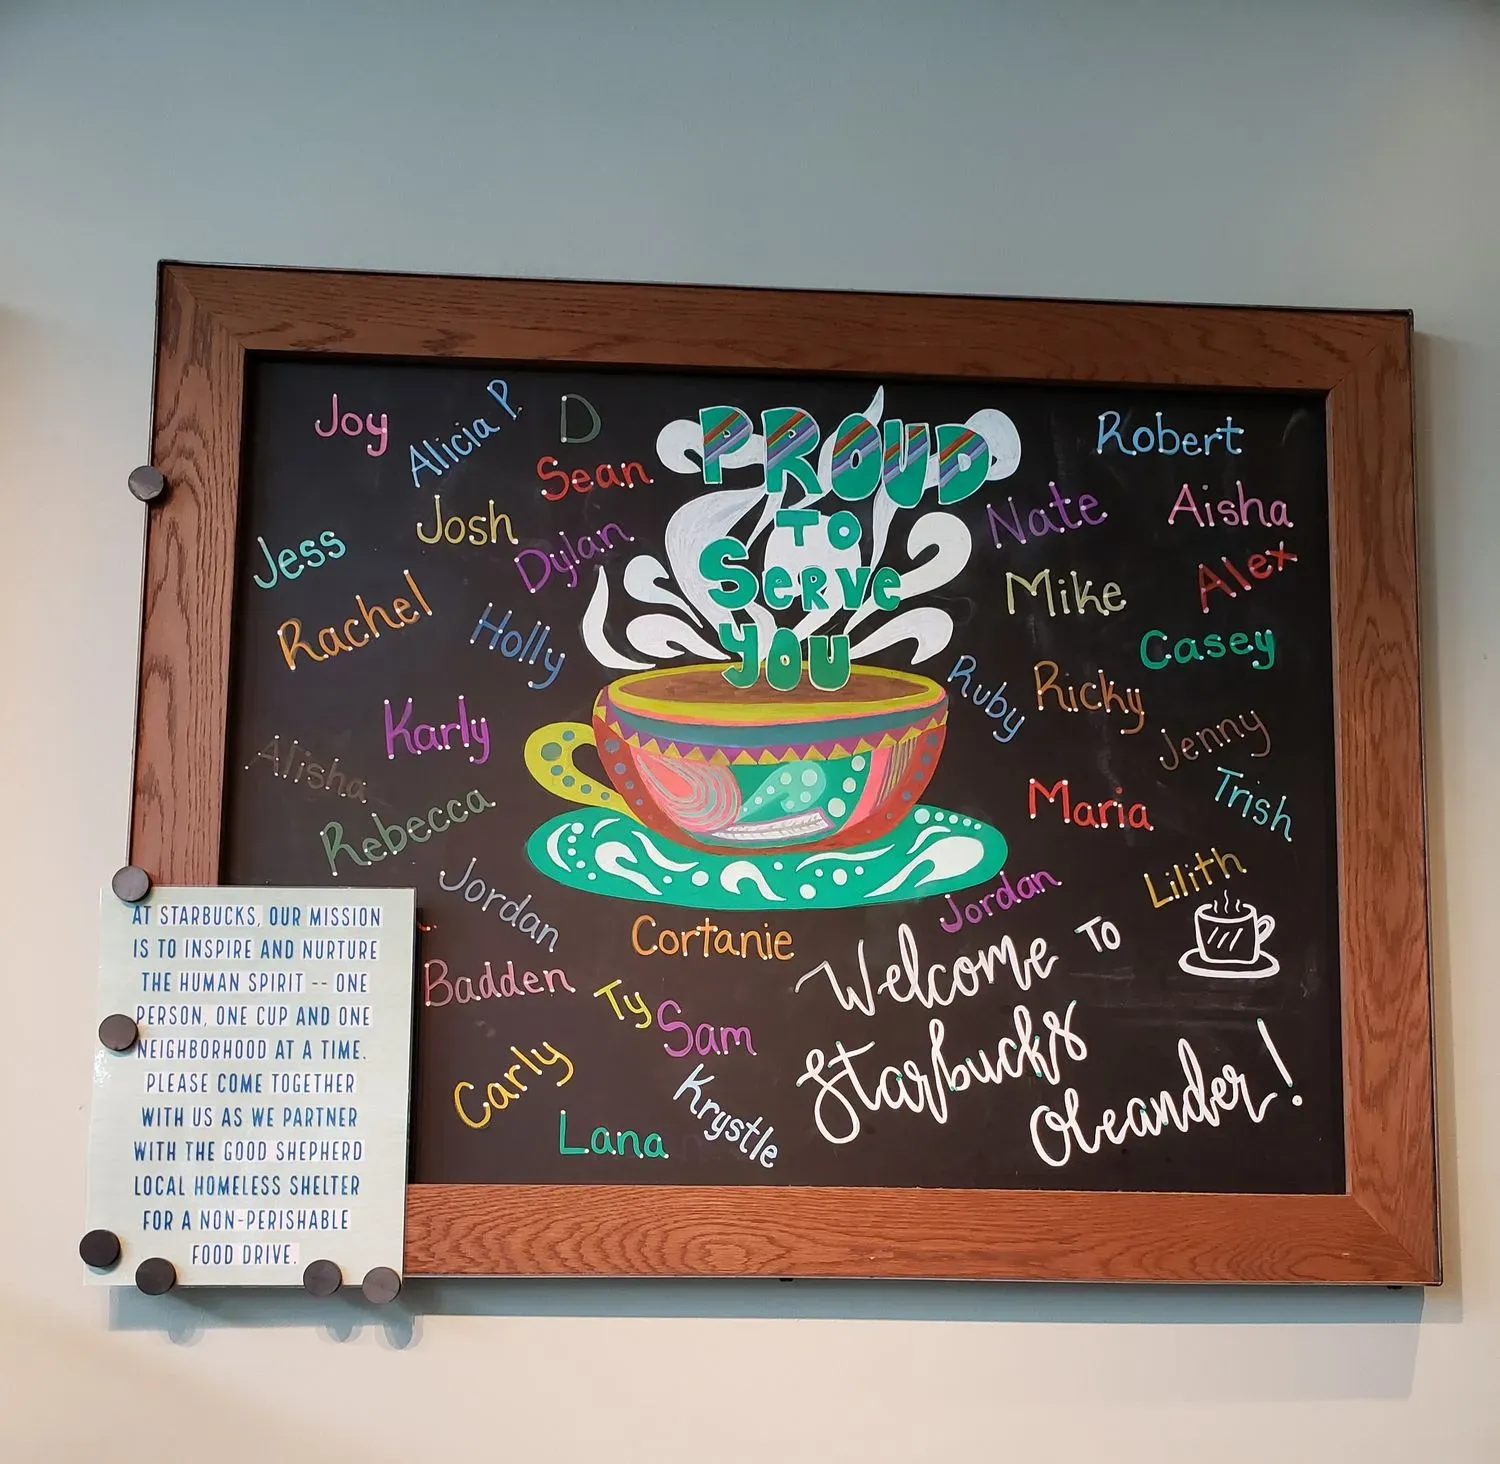 Joy
Alicia P.
D
Sean
Josh
Jess
Dylan
Rachel
Holly
Karly
Alisha
Rebecca
Jordan
PROUD
TO
SERVE
YOU
Robert
Nate
Aisha
Mike
Alex
Casey
Ruby
Ricky
Jenny
Maria
Trish
Lilith
Jordan
Cortanie
Badden
Ty
Sam
Carly
Krystle
Lana
Welcome TO
Starbucks
Oleander!
AT STARBUCKS, OUR MISSION
IS TO INSPIRE AND NURTURE
THE HUMAN SPIRIT -- ONE
PERSON, ONE CUP AND ONE
NEIGHBORHOOD AT A TIME.
PLEASE COME TOGETHER
WITH US AS WE PARTNER
WITH THE GOOD SHEPHERD
LOCAL HOMELESS SHELTER
FOR A NON-PERISHABLE
FOOD DRIVE.